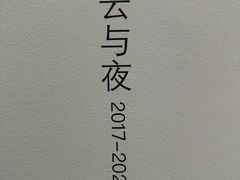 云与夜 2017-202